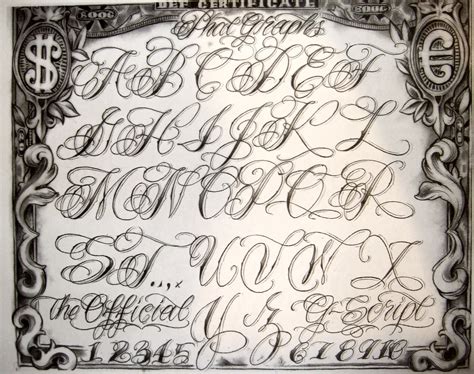 DEF CERTIFICATE
Phat Graphs
A B C D E F
G H I J K L
M N O P Q R
S T . , U V W X
the Official Y Z G-Script
1 2 3 4 5 6 7 8 9 10
$ €